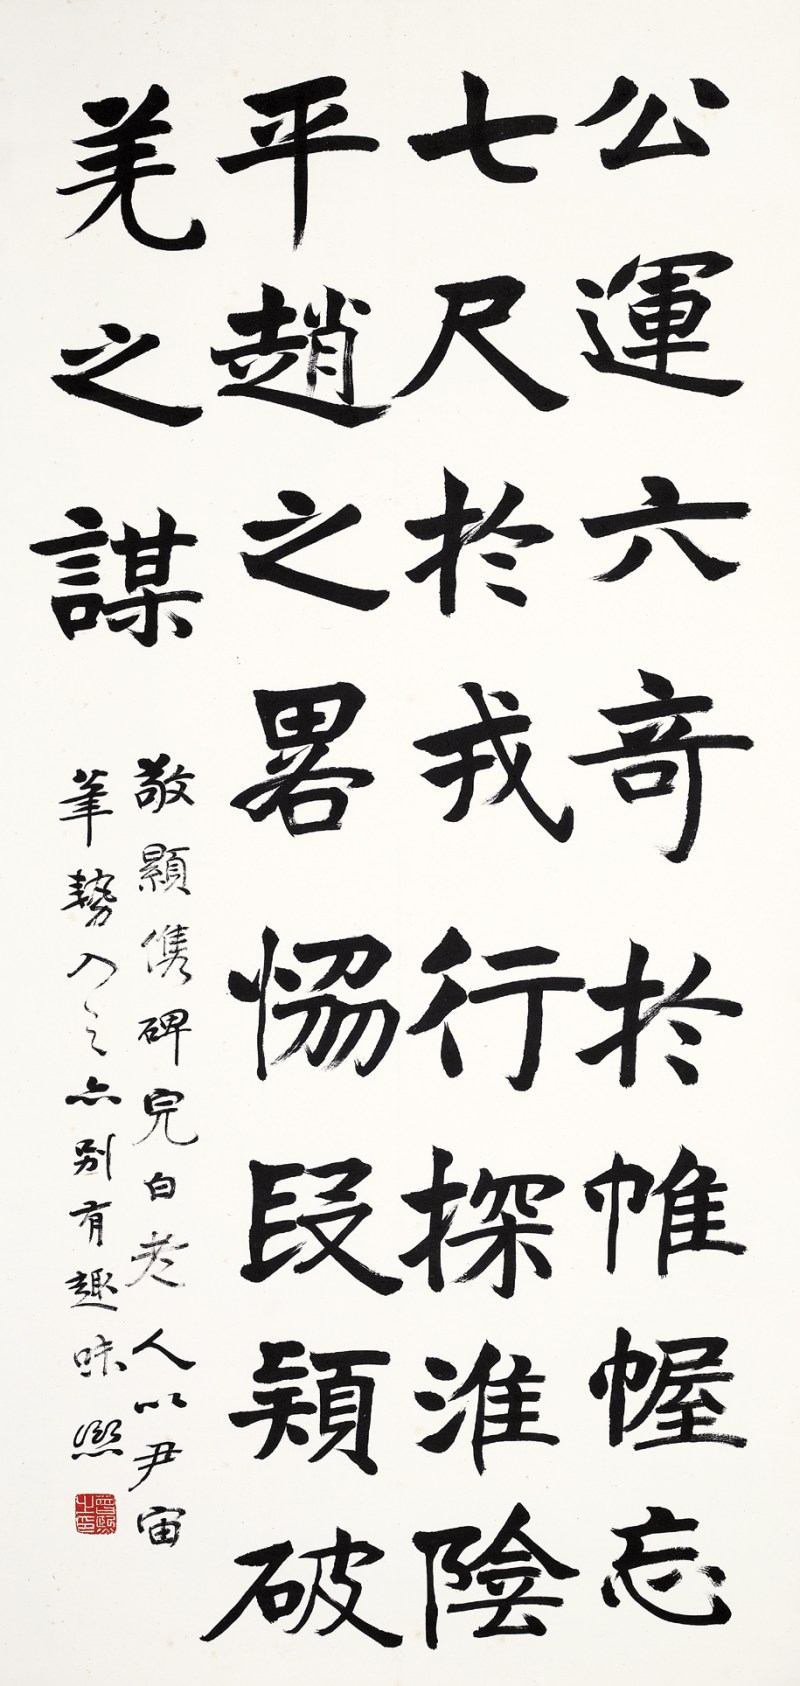 公運六竒於帷幄忘
七尺於戎行探淮陰
平趙之畧恊段熲破
羌之謀
敬顯儁碑完白老人以尹宙
筆勢入之亦別有趣味熙
曾熙之印